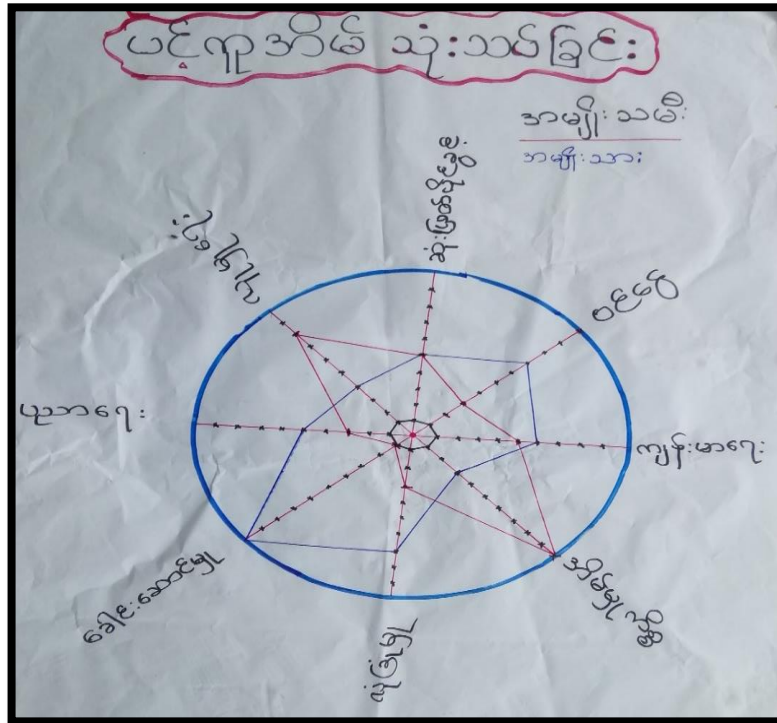 ပင့်ကူအိမ် သုံးသပ်ခြင်း
အမျိုးသမီး
အမျိုးသား
ဆုံးဖြတ်ပိုင်ခွင့်
ဝင်ငွေ
ကျန်းမာရေး
အိမ်မှုကိစ္စ
လုံခြုံမှု
ခေါင်းဆောင်မှု
ပညာရေး